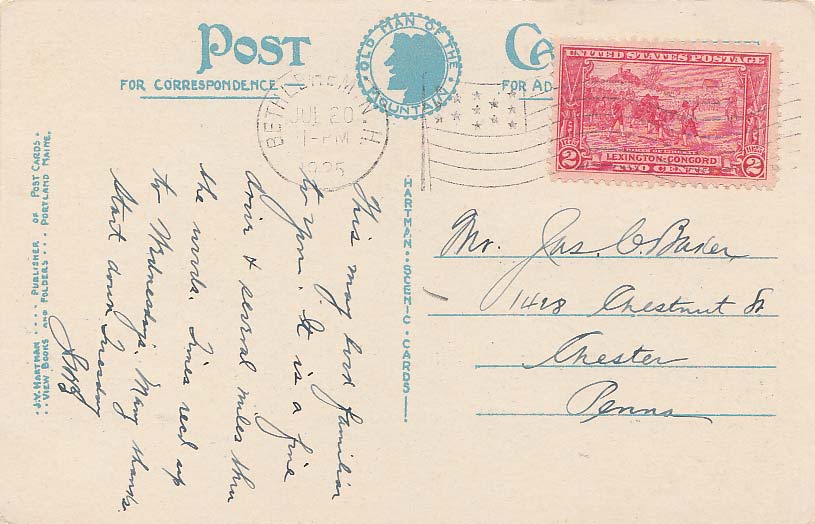 POST
CA
OLD MAN OF THE
MOUNTAIN
FOR CORRESPONDENCE
FOR AD
BETHLEHEM N.H
JUL 20
1-PM
1925
UNITED STATES POSTAGE
LEXINGTON-CONCORD
2 TWO CENTS 2
HARTMAN-SCENIC-CARDS
J.V. HARTMAN .... PUBLISHER OF POST CARDS.
.. VIEW BOOKS AND FOLDERS ... PORTLAND MAINE.
This may look familiar
to you. It is a fine
drive & several miles thru
the woods. Times read up
to Wednesdays. Many thanks.
Start down Tuesday
Mr. Jas. C. Baker
1428 Chestnut St
Chester
Penna